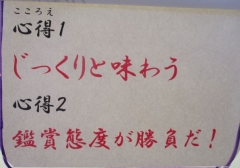 こころえ
心得1
じっくりと味わう
心得2
鑑賞態度が勝負だ!